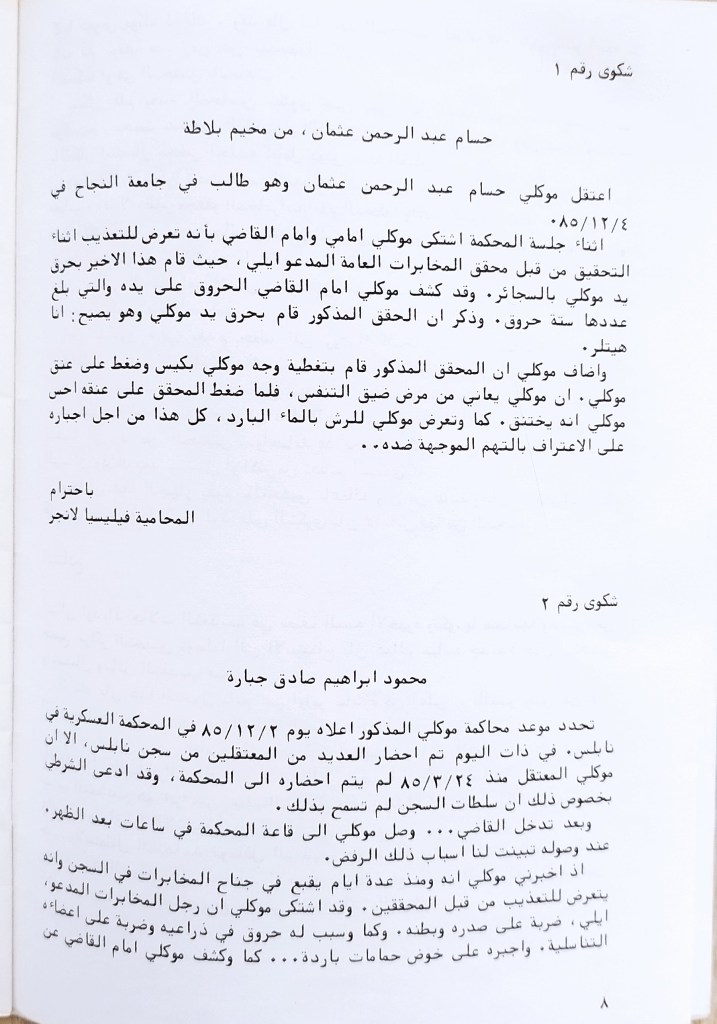 شكوى رقم ١
حسام عبد الرحمن عثمان ، من مخيم بلاطة
اعتقل موكلي حسام عبد الرحمن عثمان وهو طالب في جامعة النجاح في
٨٥/١٢/٤.
اثناء جلسة المحكمة اشتكى موكلي امامي وامام القاضي بأنه تعرض للتعذيب اثناء
التحقيق من قبل محقق المخابرات العامة المدعو ايلي ، حيث قام هذا الاخير بحرق
يد موكلي بالسجائر. وقد كشف موكلي امام القاضي الحروق على يده والتي بلغ
عددها ستة حروق. وذكر ان الحقق المذكور قام بحرق يد موكلي وهو يصيح: انا
هيتلر.
واضاف موكلي ان المحقق المذكور قام بتغطية وجه موكلي بكيس وضغط على عنق
موكلي. ان موكلي يعاني من مرض ضيق التنفس ، فلما ضغط المحقق على عنقه احس
موكلي انه يختنق. كما وتعرض موكلي للرش بالماء البارد ، كل هذا من اجل اجباره
على الاعتراف بالتهم الموجهة ضده..
باحترام
المحامية فيليسيا لانجر
شكوى رقم ٢
محمود ابراهيم صادق جبارة
تحدد موعد محاكمة موكلي المذكور اعلاه يوم ٨٥/١٢/٢ في المحكمة العسكرية في
نابلس. في ذات اليوم تم احضار العديد من المعتقلين من سجن نابلس، الا ان
موكلي المعتقل منذ ٨٥/٣/٢٤ لم يتم احضاره الى المحكمة، وقد ادعى الشرطي
بخصوص ذلك ان سلطات السجن لم تسمح بذلك.
وبعد تدخل القاضي... وصل موكلي الى قاعة المحكمة في ساعات بعد الظهر.
عند وصوله تبينت لنا اسباب ذلك الرفض.
اذ اخبرني موكلي انه ومنذ عدة ايام يقبع في جناح المخابرات في السجن وانه
يتعرض للتعذيب من قبل المحققين. وقد اشتكى موكلي ان رجل المخابرات المدعو،
ايلي، ضربة على صدره وبطنه. وكما وسبب له حروق في ذراعيه وضربة على اعضائه
التناسلية. واجبره على خوض حمامات باردة... كما وكشف موكلي امام القاضي عن
٨